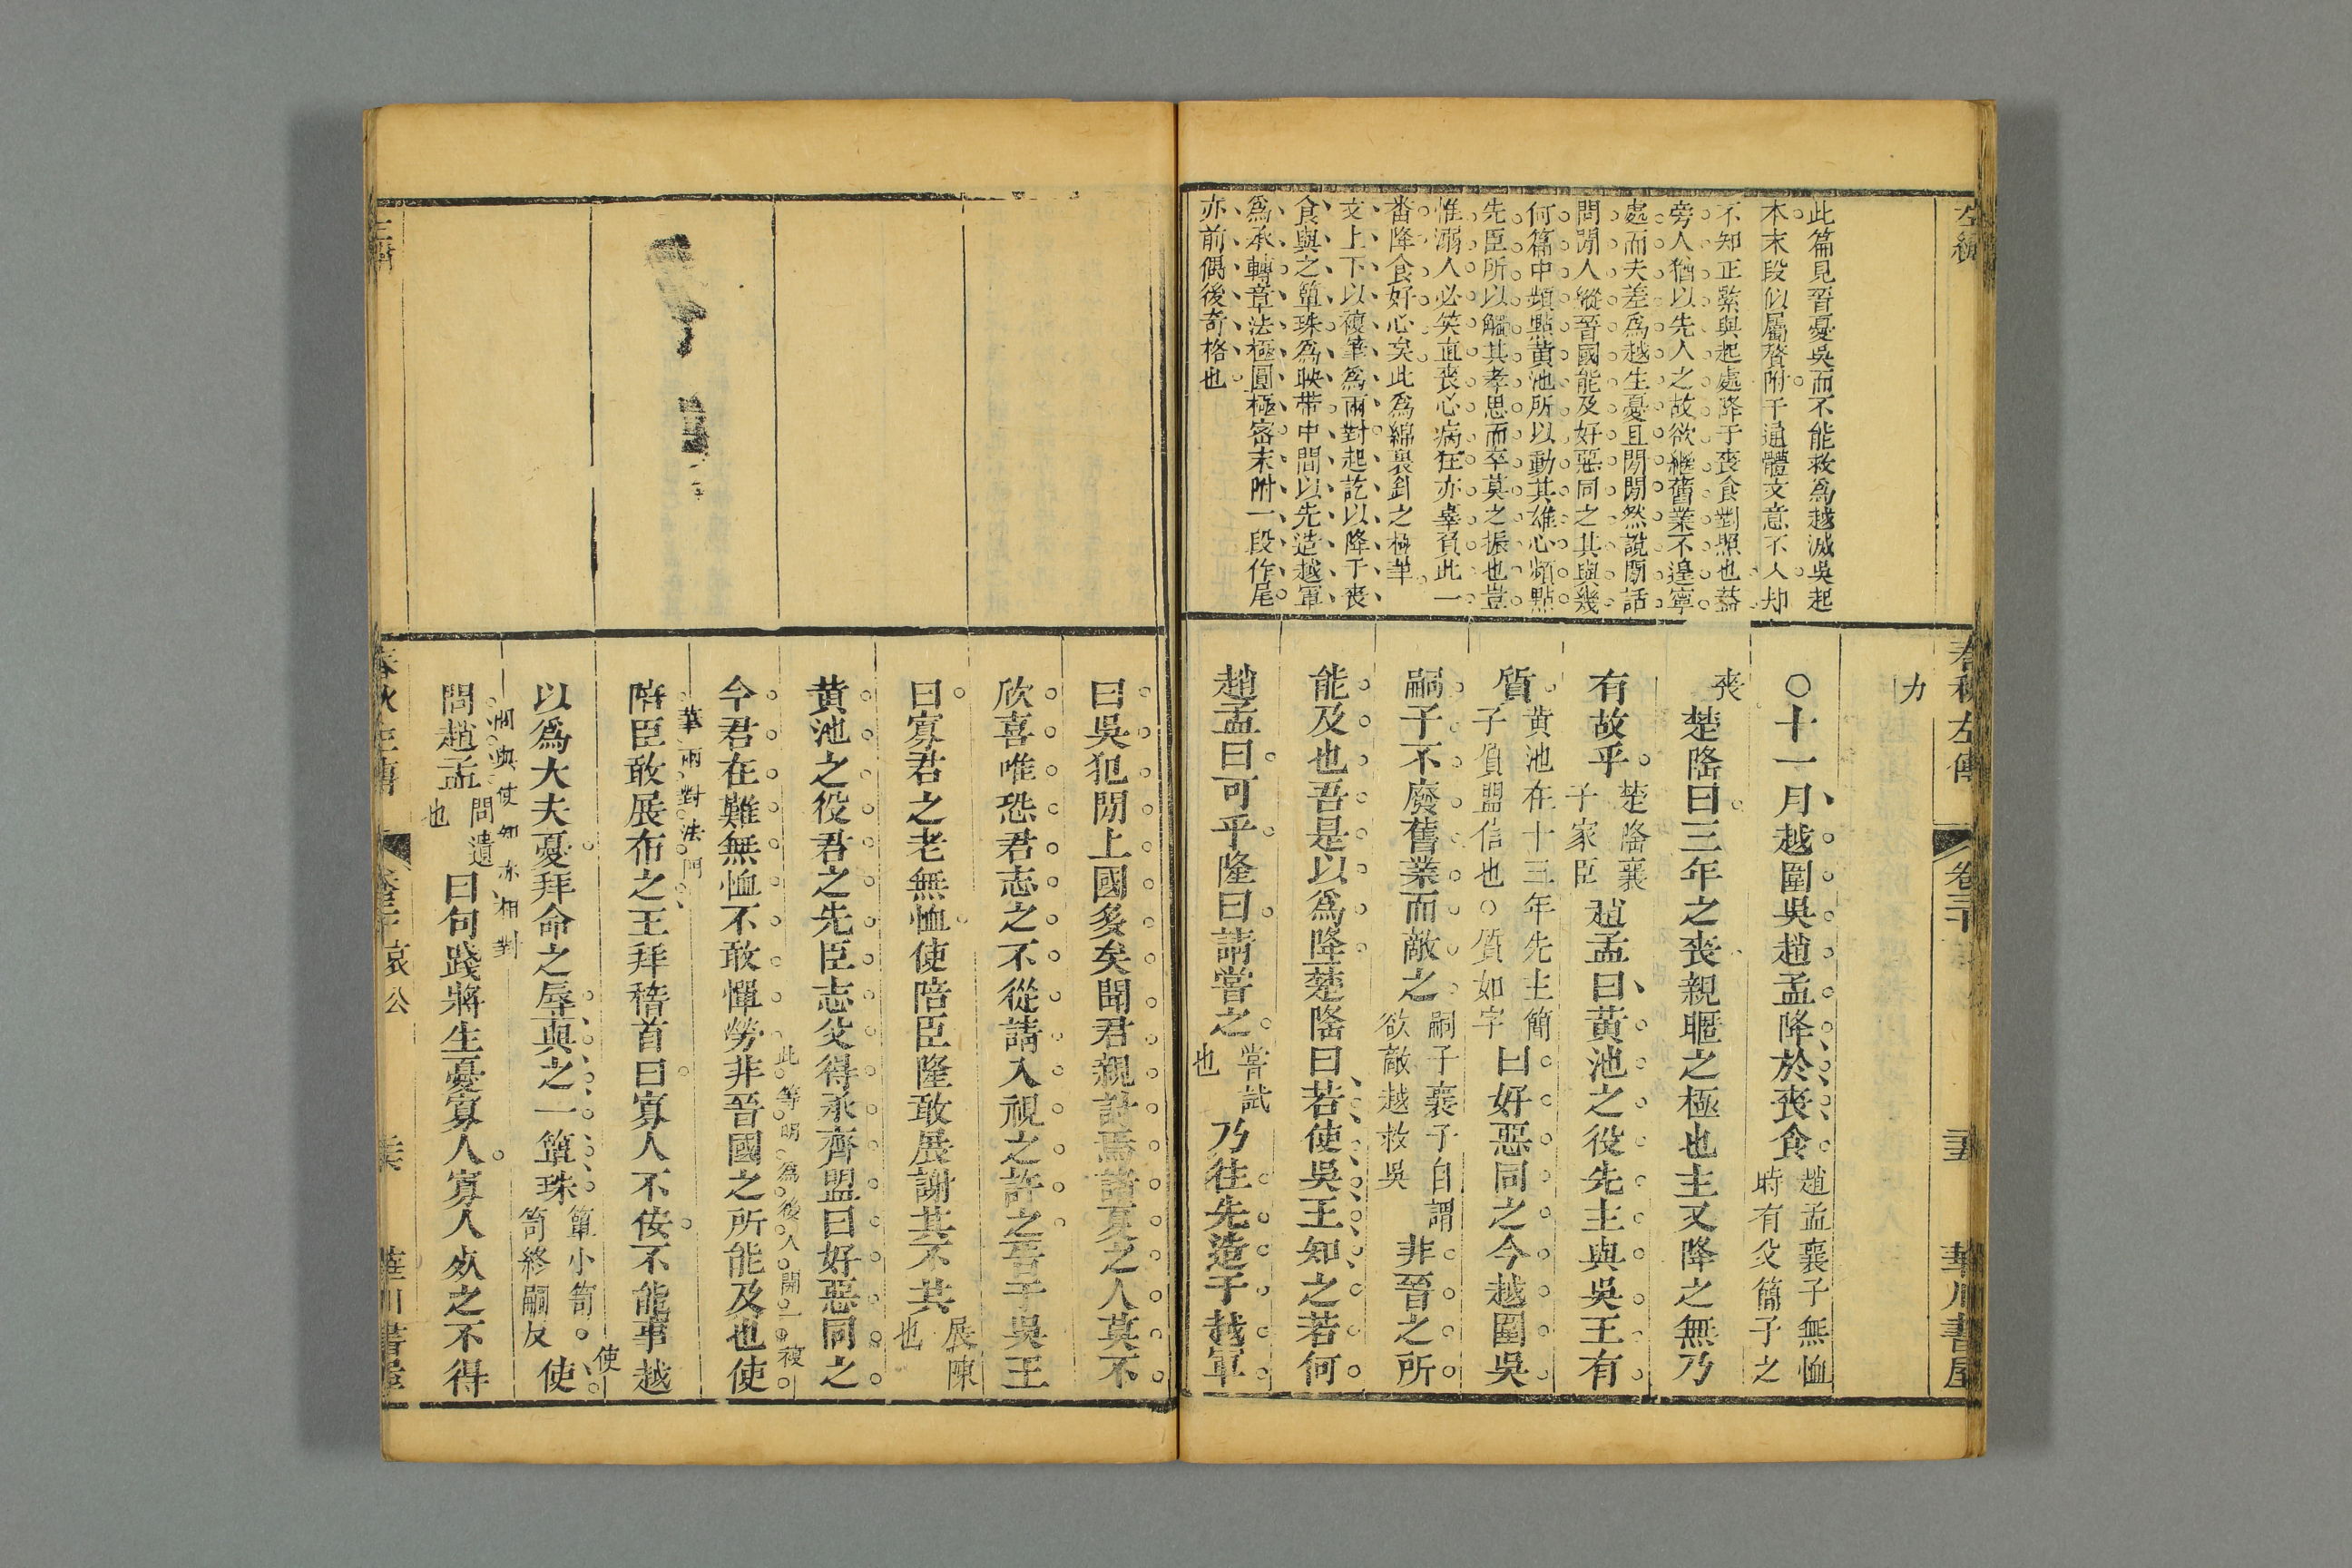 左繡
春秋左傳
卷三十
華川書屋
此篇見晉憂吳而不能救為越滅吳起
本末段似屬贅附于通體文意不入却
不知正緊與起處降于喪食對照也蓋
旁人猶以先人之故欲繼舊業不遑寧
處而夫差為越生憂且閒閒然說閒話
問閒人縱晉國能及好惡同之其與幾
何篇中頻點黃池所以動其雄心頻點
先臣所以觸其孝思而卒莫之振也豈
惟溺人必笑直喪心病狂亦辜負此一
番降食好心矣此為綿裏針之極筆
文上下以複筆為兩對起訖以降于喪
食與之簞珠為映帶中間以先造越軍
為承轉章法極圓極密末附一段作尾
亦前偶後奇格也
力
○十一月越圍吳趙孟降於喪食趙孟襄子無恤
時有父簡子之
喪楚隆曰三年之喪親暱之極也主又降之無乃
有故乎楚隆襄
子家臣趙孟曰黃池之役先主與吳王有
質黃池在十三年先主簡
子負盟信也○質如字曰好惡同之今越圍吳
嗣子不廢舊業而敵之嗣子襄子自謂
欲敵越救吳非晉之所
能及也吾是以為降楚隆曰若使吳王知之若何
趙孟曰可乎隆曰請嘗之嘗試
也乃往先造于越軍
曰吳犯閒上國多矣聞君親討焉諸夏之人莫不
欣喜唯恐君志之不從請入視之許之告于吳王
曰寡君之老無恤使陪臣隆敢展謝其不共展陳
也
黃池之役君之先臣志父得承齊盟曰好惡同之
今君在難無恤不敢憚勞非晉國之所能及也使
此等明為後人開一複
筆兩對法門
陪臣敢展布之王拜稽首曰寡人不佞不能事越
以為大夫憂拜命之辱與之一簞珠簞小笥。
笥終嗣反使
使
問與使知亦相對
問趙孟問遺
也曰句踐將生憂寡人寡人死之不得
哀公